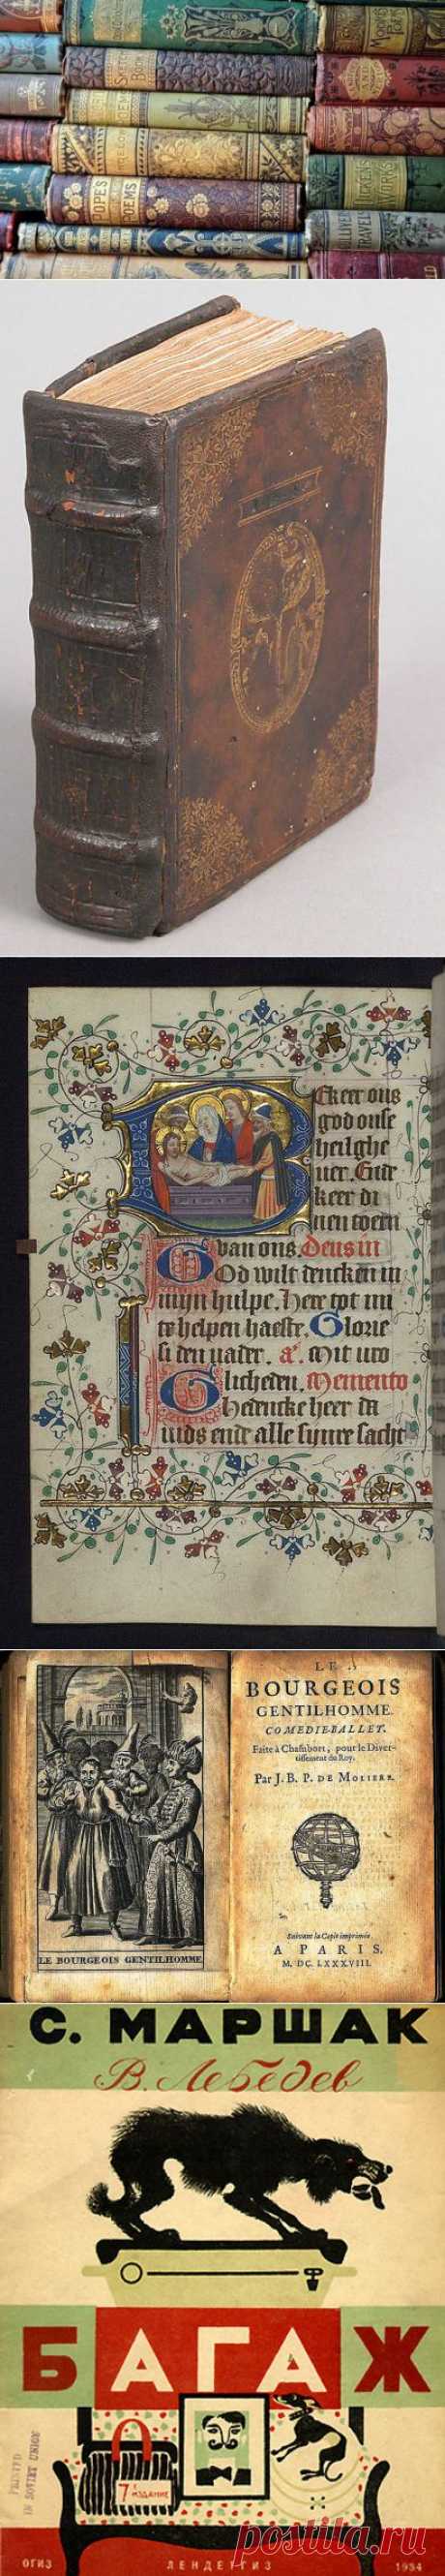 POPE'S
POEMS
DICKENS
WORKS
TRAVELS
Ekeer ons
god onse
heilghe
uer. Ende
keer di
uen toern
van ons. Deus in
God wilt dencken in
mijn hulpe. Here tot mi
te helpen haeste. Glorie
si den uader. a'. Mit uro
licheden. Memento
Ghedencke heer da
uids ende alle sijnre sacht
LE BOURGEOIS GENTILHOMME
LE
BOURGEOIS
GENTILHOMME.
COMEDIE-BALLET.
Faite à Chambort, pour le Diver-
tissement du Roy,
Par J. B. P. DE MOLIERE.
Suivant la Copie imprimée
A PARIS.
M. DC. LXXXVIII.
С. МАРШАК
В. Лебедев
БАГАЖ
7е ИЗДАНИЕ
PRINTED
IN SOVIET UNION
ОГИЗ ЛЕНДЕТГИЗ 1934
postila.ru